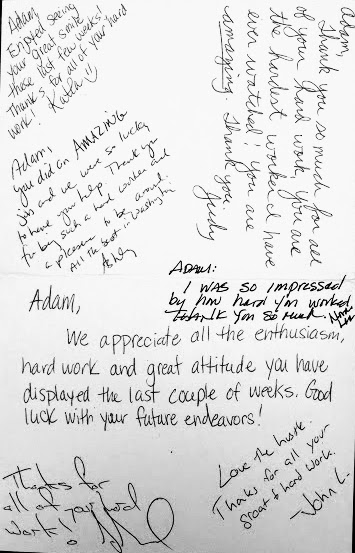 Adam,
Enjoyed seeing
your great smile
these last few weeks!
Thanks for all of your hard
work! Katla
Adam,
Thank you so much for all
of your hard work. You are
the hardest worker I have
ever watched! You are
amazing. Thank you.
Judy
Adam,
you did an AMAZING
Job and we were so lucky
to have your help. Thank you
for being such a hard worker and
a pleasure to be around.
All the best in Washington!
Ashley
ADAM:
I WAS SO IMPRESSED
by how hard you worked
THANK YOU SO MUCH.
Adam,
We appreciate all the enthusiasm,
hard work and great attitude you have
displayed the last couple of weeks. Good
luck with your future endeavors!
Thanks for
all of your hard
work!
Love the hustle.
Thanks for all your
great & hard work.
John L.